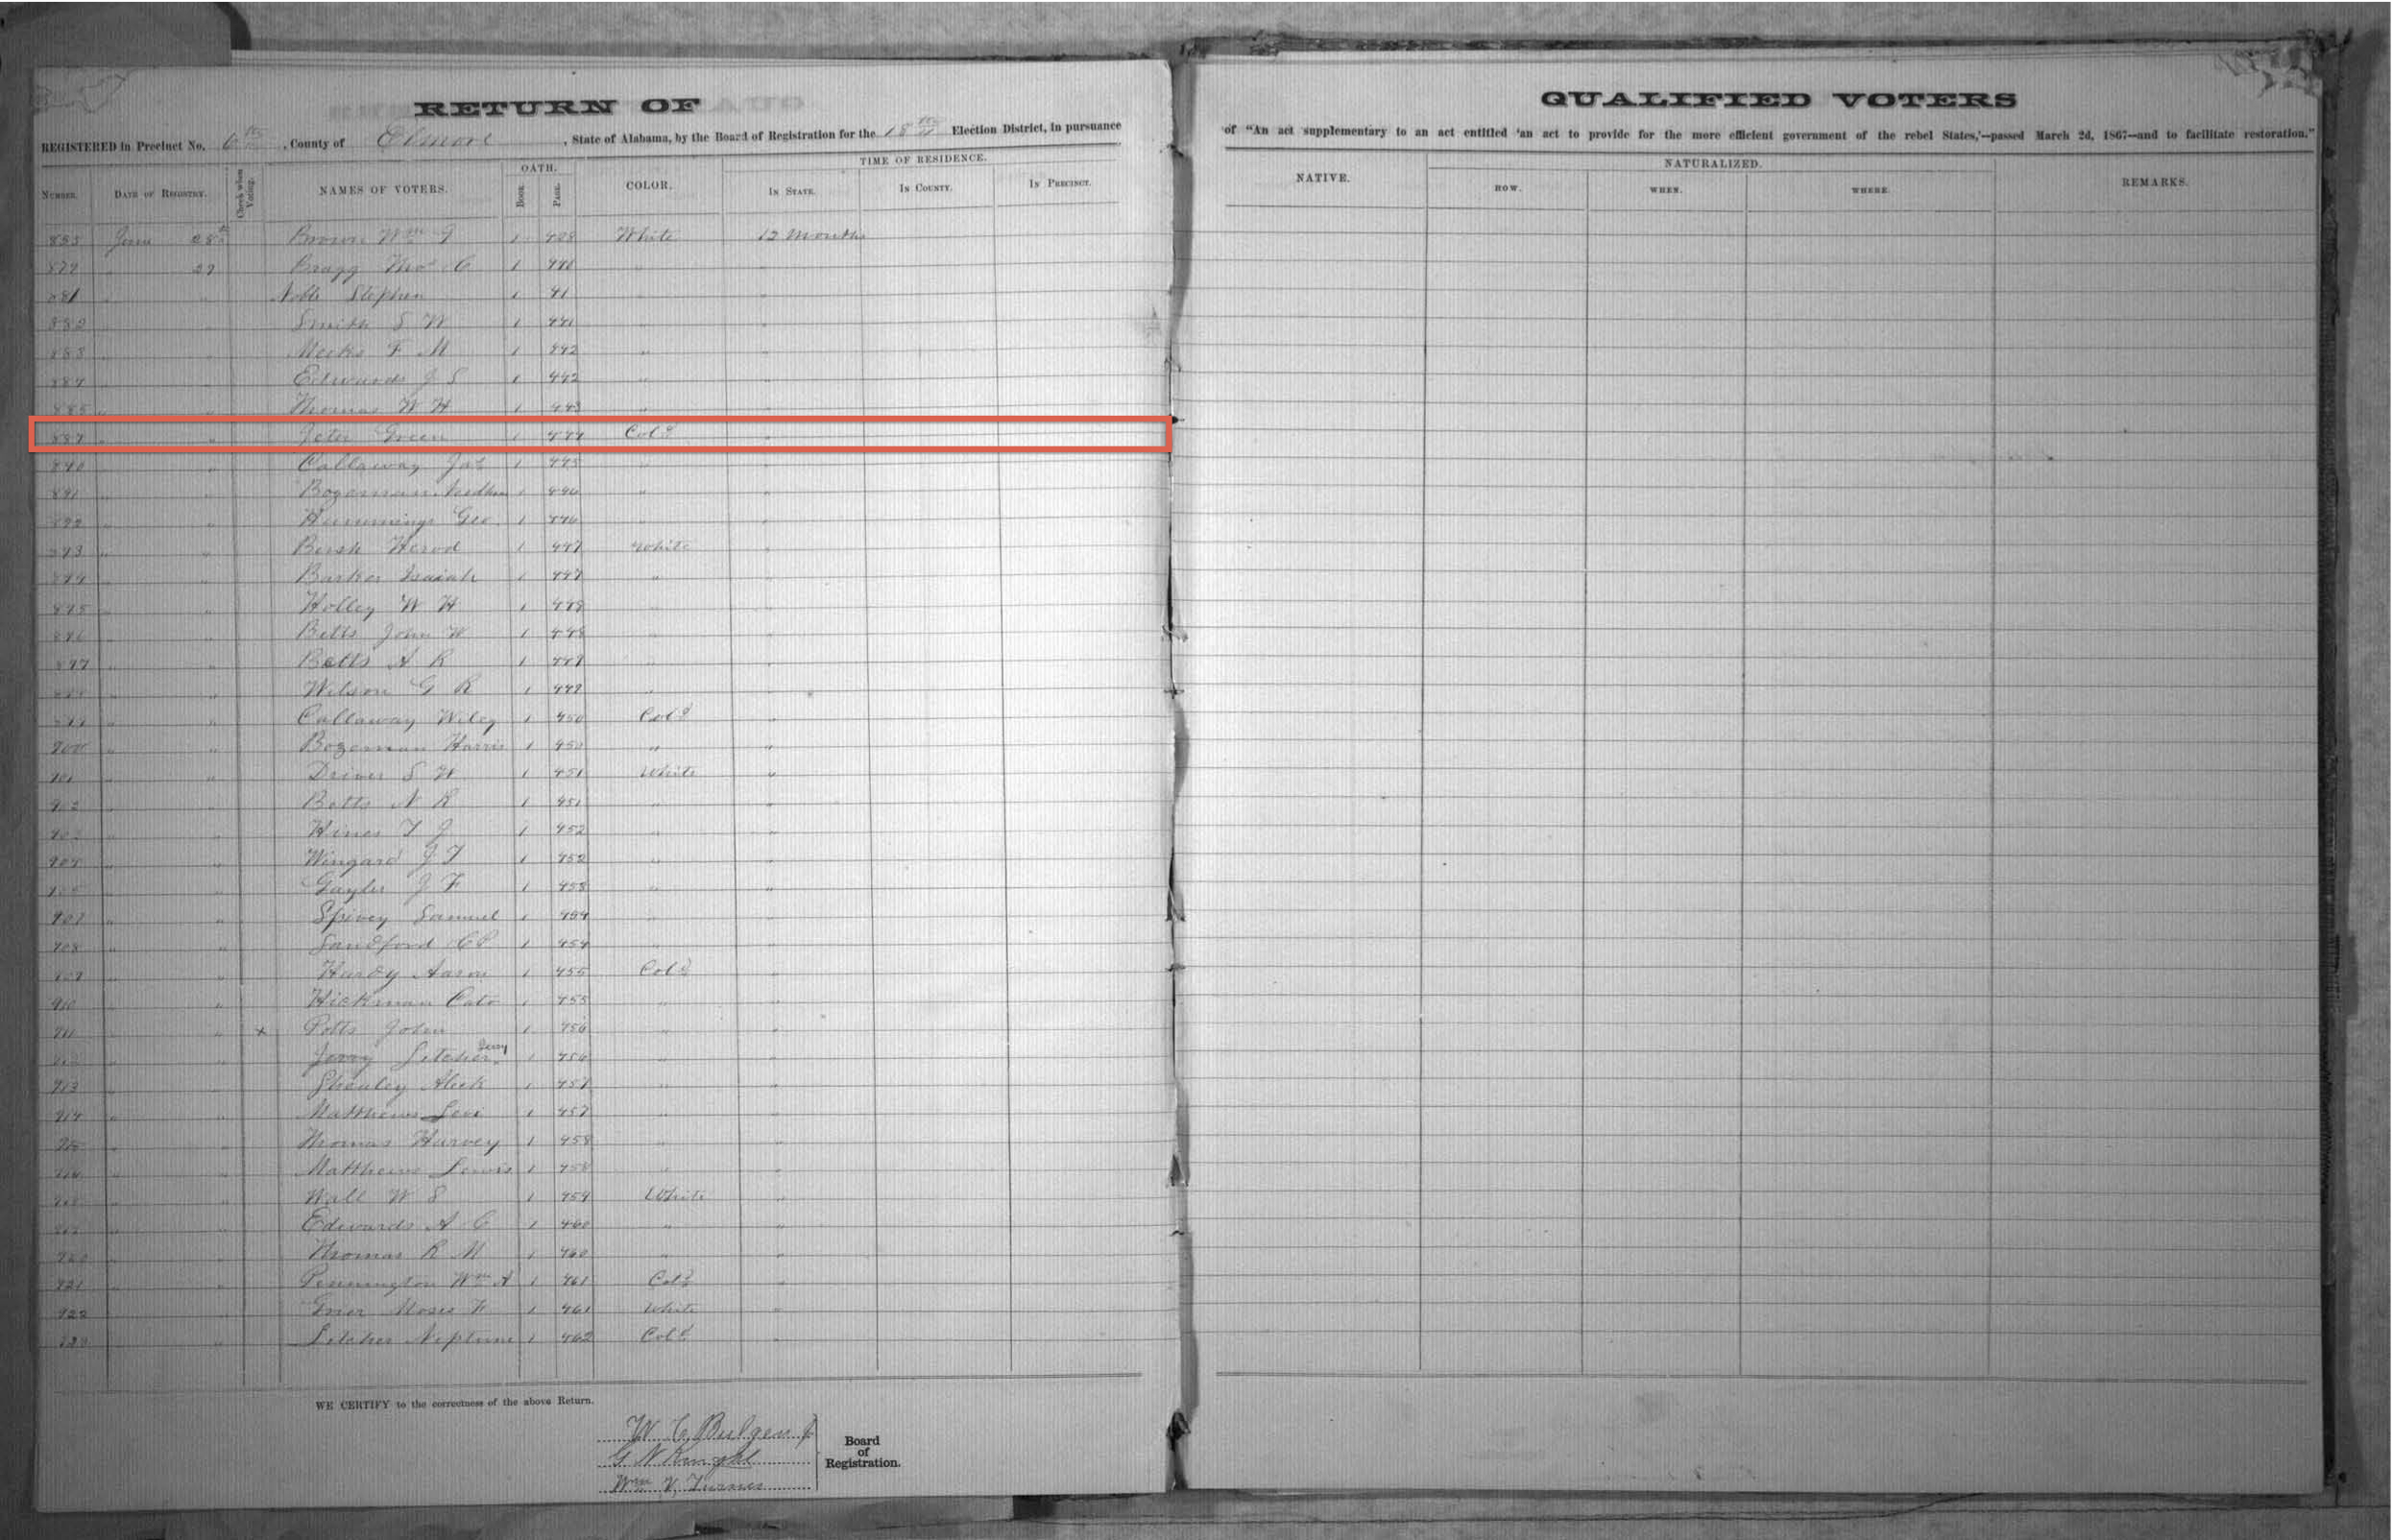 RETURN OF
QUALIFIED VOTERS
REGISTERED in Precinct No. 6th, County of Elmore, State of Alabama, by the Board of Registration for the 18th Election District, in pursuance
of "An act supplementary to an act entitled 'an act to provide for the more efficient government of the rebel States,'—passed March 2d, 1867—and to facilitate restoration."
NUMBER. DATE OF REGISTRY. Check when Voting. NAMES OF VOTERS. OATH. BOOK. PAGE. COLOR. TIME OF RESIDENCE. IN STATE. IN COUNTY. IN PRECINCT.
NATIVE. NATURALIZED. HOW. WHEN. WHERE. REMARKS.
June 28th Brown Wm 1 White 12 Months
879 " 29 Bragg Thos C 1 440 " "
881 " " Noble Stephen 1 41 " "
882 " " Smith S W 1 441 " "
883 " " Meeks F M 1 442 " "
884 " " Edwards J S 1 442 " "
885 " " Thomas W H 1 443 " "
" " Jeter Green 1 444 Cold "
" " Callaway Jas 1 445 " "
891 " " Bozeman 1 446 " "
892 " " Hemmings Geo. 1 446 " "
893 " " Herod 1 447 White "
894 " " Barker Isaiah 1 447 " "
895 " " Holley W H 1 448 " "
896 " " Betts John W 1 448 " "
897 " " Betts A R 1 449 " "
" " Wilson G R 1 449 " "
899 " " Callaway Wiley 1 450 Cold "
900 " " Bozeman Harris 1 450 " "
901 " " Driver S W 1 451 White "
902 " " Betts N R 1 451 " "
903 " " Hines T J 1 452 " "
904 " " Wingard J T 1 452 " "
905 " " Gayler J F 1 453 " "
907 " " Spivey Samuel 1 454 " "
908 " " Sandford 1 454 " "
909 " " Hardy Aaron 1 455 Cold "
910 " " Hickman Cato 1 455 " "
911 " " x Potts John 1 456 " "
912 " " Jerry Letcher Jerry 1 456 " "
913 " " Alick 1 457 " "
914 " " Matthews Levi 1 457 " "
915 " " Thomas Harvey 1 458 " "
916 " " Matthews Lewis 1 458 " "
" " Wall W S 1 459 White "
" " Edwards A C 1 460 " "
920 " " Thomas R M 1 460 " "
921 " " Pennington Wm A 1 461 Cold "
922 " " Grier Moses F 1 461 White "
923 " " Letcher Neptune 1 462 Cold "
WE CERTIFY to the correctness of the above Return.
W. C.
G N Knight
Wm V. Turner
Board
of
Registration.